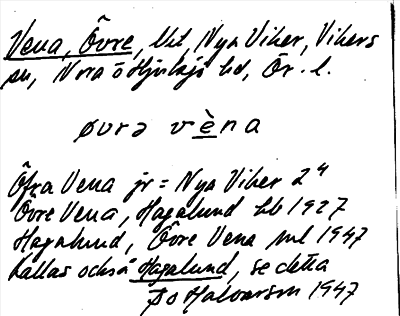 Vena, Övre, lht, Nya Viker, Vikers
sn, Nora o Hjulsjö hd, Ör. l.
øvrə vèna
Öfra Vena jr = Nya Viker 2⁴
Övre Vena, Hagalund hb 1927
Hagalund, Övre Vena ml 1947
Kallas också Hagalund, se detta
So Halvarson 1947